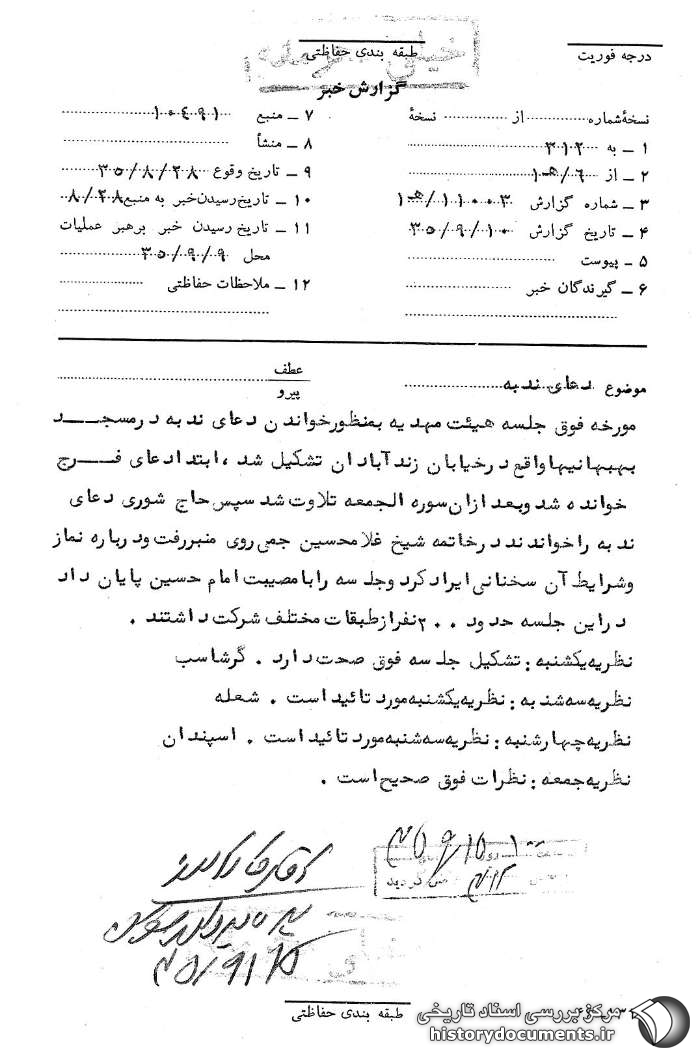 خیلی محرمانه
درجه فوریت
طبقه بندی حفاظتی
گزارش خبر
نسخهٔ شماره .......... از .......... نسخهٔ
۱ ـ به ۳۱۲
۲ ـ از ۶/ه‍۱
۳ ـ شماره گزارش ۱۱۰۰۳/ه‍۱
۴ ـ تاریخ گزارش ۳۵/۹/۱۰
۵ ـ پیوست
۶ ـ گیرندگان خبر
۷ ـ منبع ۱۰۴۹۱
۸ ـ منشأ
۹ ـ تاریخ وقوع ۳۵/۸/۲۸
۱۰ ـ تاریخ رسیدن خبر به منبع ۸/۲۸
۱۱ ـ تاریخ رسیدن خبر برهبر عملیات
محل ۳۵/۹/۹
۱۲ ـ ملاحظات حفاظتی
موضوع دعای ندبه
عطف
پیرو
مورخه فوق جلسه هیئت مهدیه بمنظور خواندن دعای ندبه در مسجد
بهبهانیها واقع در خیابان زند آبادان تشکیل شد ، ابتدا دعای فرج
خوانده شد وبعد ازان سوره الجمعه تلاوت شد سپس حاج شوری دعای
ندبه را خواندند در خاتمه شیخ غلامحسین جمی روی منبر رفت ودرباره نماز
وشرایط آن سخنانی ایراد کرد وجلسه را با مصیبت امام حسین پایان داد
دراین جلسه حدود ۲۰۰ نفر از طبقات مختلف شرکت داشتند .
نظریه یکشنبه : تشکیل جلسه فوق صحت دارد . گرشاسب
نظریه سه شنبه : نظریه یکشنبه مورد تائید است . شعله
نظریه چهارشنبه : نظریه سه شنبه مورد تائید است . اسپندان
نظریه جمعه : نظرات فوق صحیح است .
طبقه بندی حفاظتی
مرکز بررسی اسناد تاریخی
historydocuments.ir